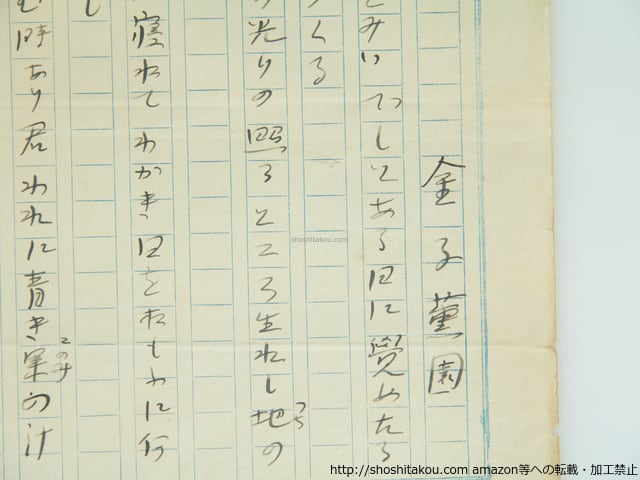 金子薫園
とみいでしとある日に覺めたる
くる
光りの照るところ生れし地の
つち
寝ねてわかき日をおもふに何
し
む時あり君われに青き果の汁
このみ
shoshitakou.com
http://shoshitakou.com amazon等への転載・加工禁止